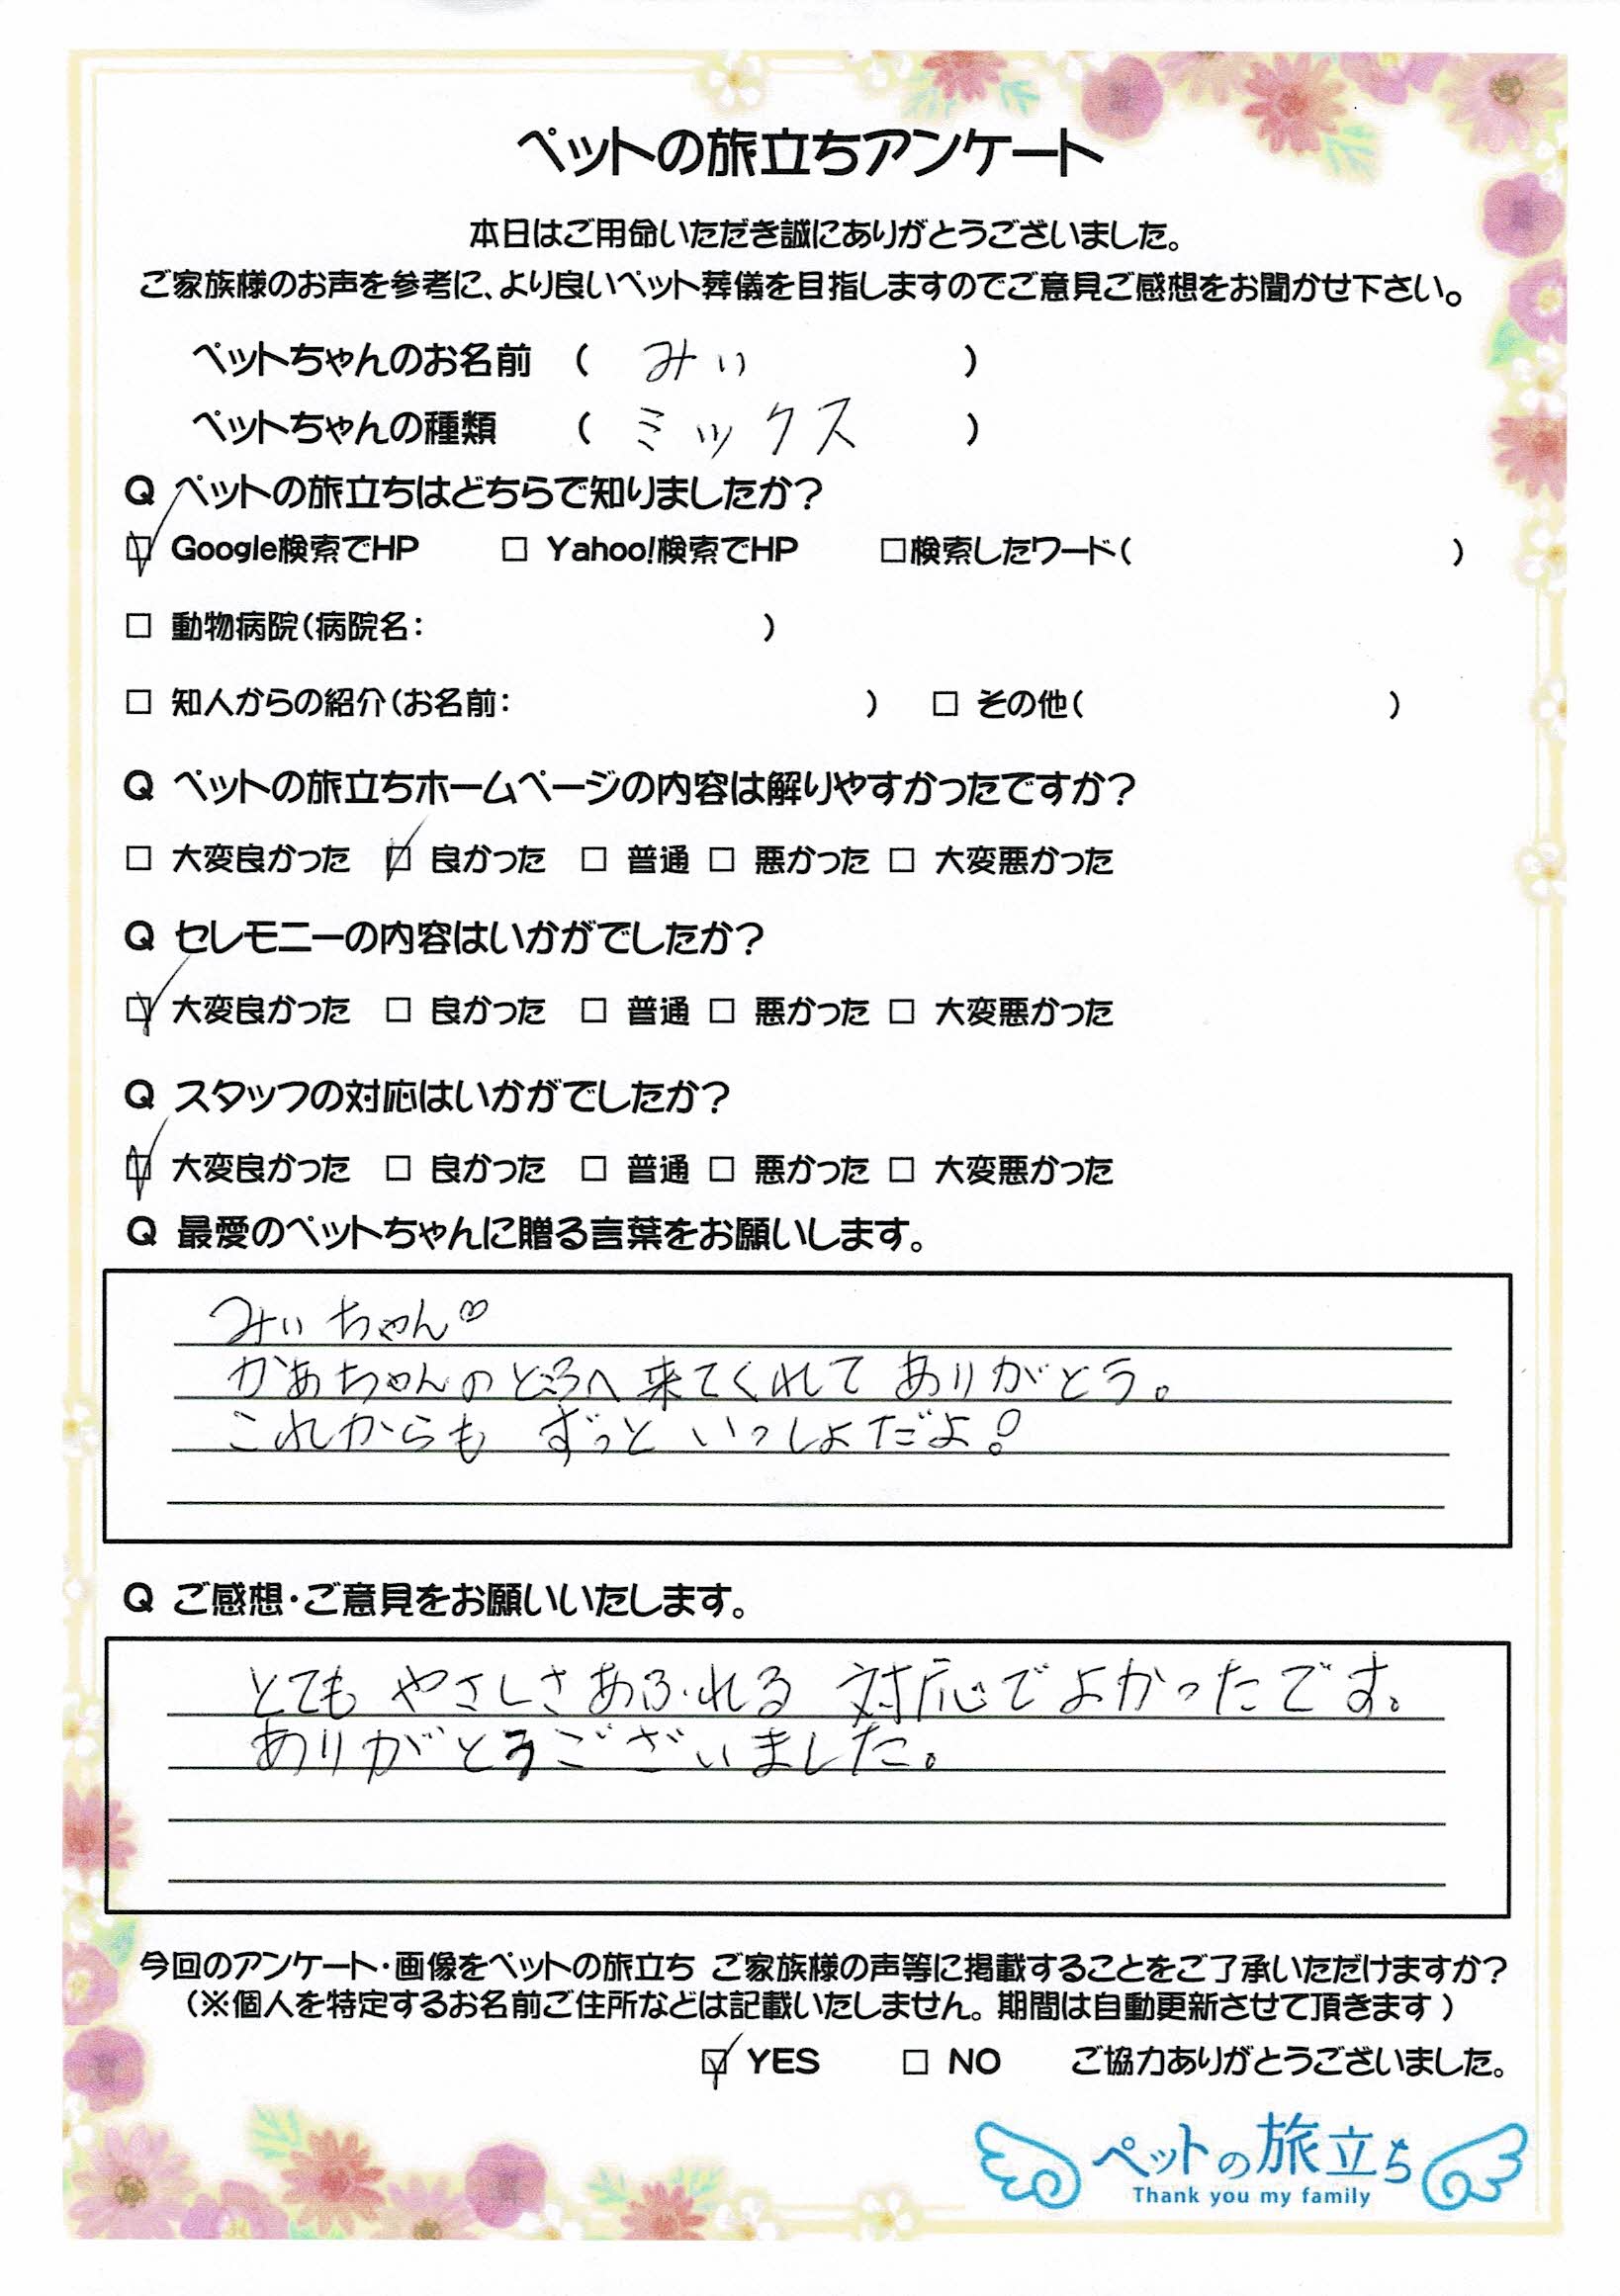 ペットの旅立ちアンケート
本日はご用命いただき誠にありがとうございました。
ご家族様のお声を参考に、より良いペット葬儀を目指しますのでご意見ご感想をお聞かせ下さい。
ペットちゃんのお名前 ( みぃ )
ペットちゃんの種類 ( ミックス )
Q ペットの旅立ちはどちらで知りましたか?
☑ Google検索でHP □ Yahoo!検索でHP □検索したワード( )
□ 動物病院(病院名: )
□ 知人からの紹介(お名前: ) □ その他( )
Q ペットの旅立ちホームページの内容は解りやすかったですか?
□ 大変良かった ☑ 良かった □ 普通 □ 悪かった □ 大変悪かった
Q セレモニーの内容はいかがでしたか?
☑ 大変良かった □ 良かった □ 普通 □ 悪かった □ 大変悪かった
Q スタッフの対応はいかがでしたか?
☑ 大変良かった □ 良かった □ 普通 □ 悪かった □ 大変悪かった
Q 最愛のペットちゃんに贈る言葉をお願いします。
みぃちゃん♡
かあちゃんのところへ来てくれて ありがとう。
これからも ずっと いっしょだよ!
Q ご感想・ご意見をお願いいたします。
とても やさしさあふれる 対応でよかったです。
ありがとうございました。
今回のアンケート・画像をペットの旅立ち ご家族様の声等に掲載することをご了承いただけますか?
(※個人を特定するお名前ご住所などは記載いたしません。期間は自動更新させて頂きます)
☑ YES □ NO ご協力ありがとうございました。
ペットの旅立ち
Thank you my family